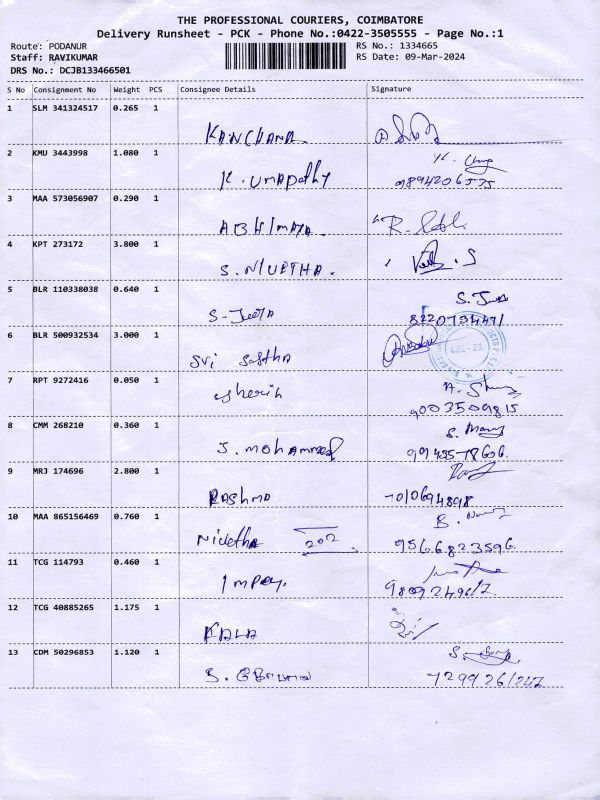 THE PROFESSIONAL COURIERS, COIMBATORE
Delivery Runsheet - PCK - Phone No.:0422-3505555 - Page No.:1
Route: PODANUR
RS No.: 1334665
Staff: RAVIKUMAR
RS Date: 09-Mar-2024
DRS No.: DCJB133466501
S No Consignment No Weight PCS Consignee Details Signature
1 SLM 341324517 0.265 1
KANCHANA.
2 KMU 3443998 1.080 1
K. UMApathy
9894206575
3 MAA 573056907 0.290 1
ABHIMAYA.
4 KPT 273172 3.800 1
S. NIVETHA.
5 BLR 110338038 0.640 1
S. Jeeta
8220734471
6 BLR 500932534 3.000 1
Sri Sastha
7 RPT 9272416 0.050 1
9003509815
8 CMM 268210 0.360 1
J. mohammed
9 MRJ 174696 2.800 1
RASHMA
7010694898
10 MAA 865156469 0.760 1
Nivetha 202
9566823596.
11 TCG 114793 0.460 1
12 TCG 40885265 1.175 1
KALA
13 CDM 50296853 1.120 1
7299261247